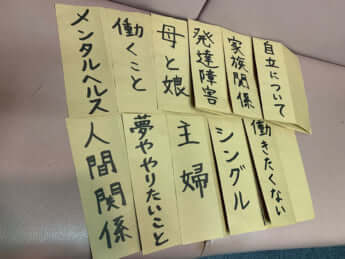 自立について
家族関係
発達障害
母と娘
働くこと
メンタルヘルス
働きたくない
シングル
主婦
夢ややりたいこと
人間関係